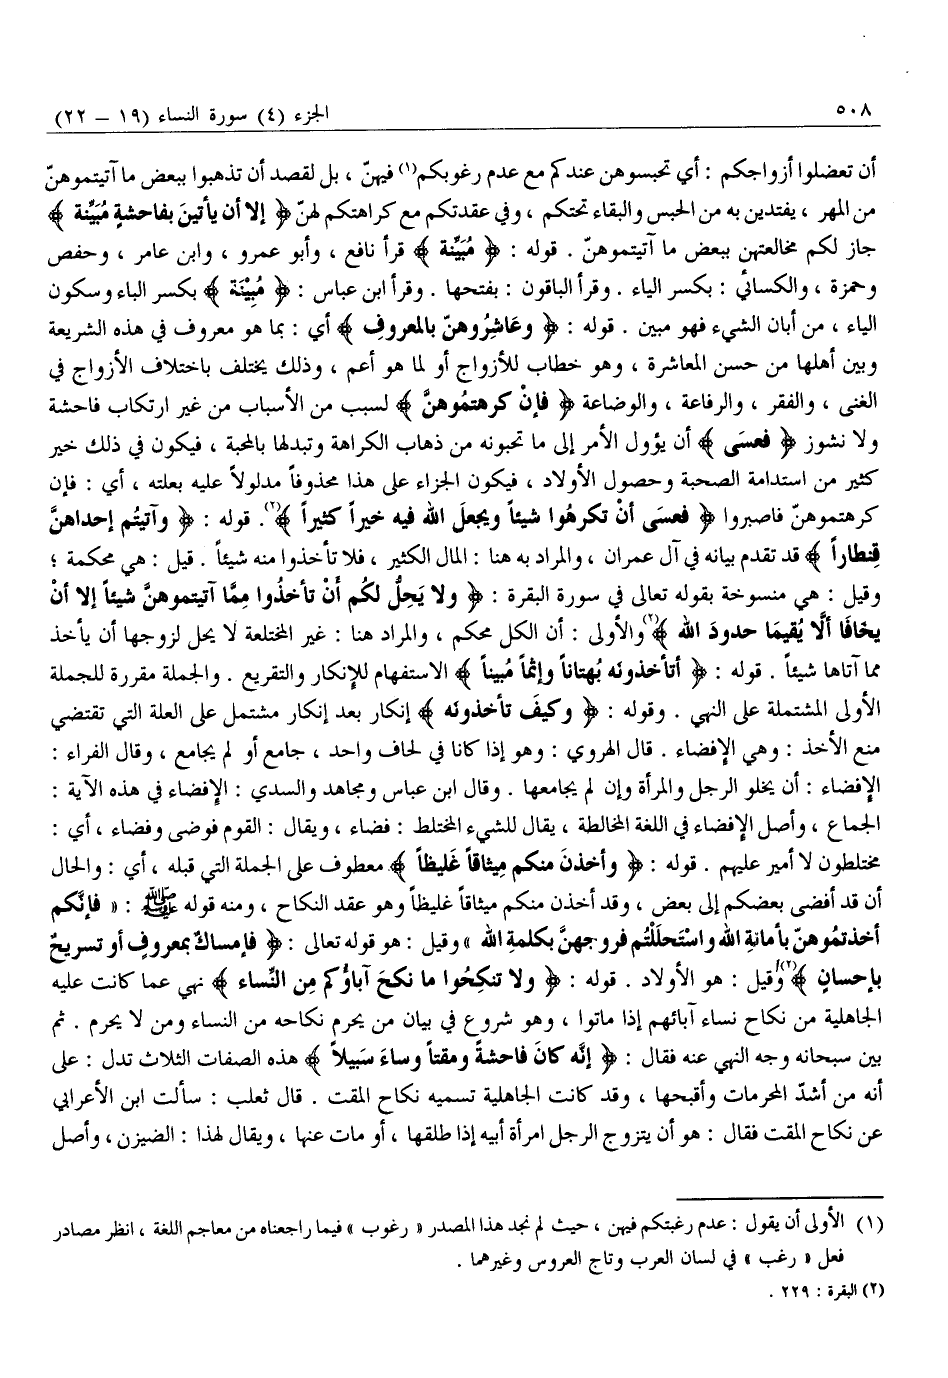 ٥٠٨
الجزء (٤) سورة النساء (١٩ – ٢٢)
أن تعضلوا أزواجكم : أي تحبسوهن عندكم مع عدم رغوبكم(١) فيهنّ ، بل لقصد أن تذهبوا ببعض ما آتيتموهنّ
من المهر ، يفتدين به من الحبس والبقاء تحتكم ، وفي عقدتكم مع كراهتكم لهنّ ﴿ إلا أن يأتينَ بفاحشةٍ مُبَيِّنة ﴾
جاز لكم مخالعتهن ببعض ما آتيتموهنّ . قوله : ﴿ مُبَيِّنة ﴾ قرأ نافع ، وأبو عمرو ، وابن عامر ، وحفص
وحمزة ، والكسائي : بكسر الياء . وقرأ الباقون : بفتحها . وقرأ ابن عباس : ﴿ مُبِيْنَة ﴾ بكسر الباء وسكون
الياء ، من أبان الشيء فهو مبين . قوله : ﴿ وعَاشِرُوهنّ بالمعروف ﴾ أي : بما هو معروف في هذه الشريعة
وبين أهلها من حسن المعاشرة ، وهو خطاب للأزواج أو لما هو أعم ، وذلك يختلف باختلاف الأزواج في
الغنى ، والفقر ، والرفاعة ، والوضاعة ﴿ فإنْ كرهتمُوهنَّ ﴾ لسبب من الأسباب من غير ارتكاب فاحشة
ولا نشوز ﴿ فعسَى ﴾ أن يؤول الأمر إلى ما تحبونه من ذهاب الكراهة وتبدلها بالمحبة ، فيكون في ذلك خير
كثير من استدامة الصحبة وحصول الأولاد ، فيكون الجزاء على هذا محذوفاً مدلولاً عليه بعلته ، أي : فإن
كرهتموهنّ فاصبروا ﴿ فعسَى أنْ تكرهُوا شيئاً ويجعلَ الله فيه خيراً كثيراً ﴾(٢). قوله : ﴿ وآتيتُم إحداهنَّ
قِنطاراً ﴾ قد تقدم بيانه في آل عمران ، والمراد به هنا : المال الكثير ، فلا تأخذوا منه شيئاً . قيل : هي محكمة ؛
وقيل : هي منسوخة بقوله تعالى في سورة البقرة : ﴿ ولا يَحِلُّ لكُم أَنْ تأخذُوا مِمَّا آتيتموهنَّ شيئاً إلا أنْ
يخافَا ألَّا يُقيمَا حدودَ الله ﴾(٢) والأولى : أن الكل محكم ، والمراد هنا : غير المختلعة لا يحل لزوجها أن يأخذ
مما آتاها شيئاً . قوله : ﴿ أتأخذونَه بُهتاناً وإثْماً مُبيناً ﴾ الاستفهام للإنكار والتقريع . والجملة مقررة للجملة
الأولى المشتملة على النهي . وقوله : ﴿ وكيفَ تأخذونَه ﴾ إنكار بعد إنكار مشتمل على العلة التي تقتضي
منع الأخذ : وهي الإفضاء . قال الهروي : وهو إذا كانا في لحاف واحد ، جامع أو لم يجامع ، وقال الفراء :
الإفضاء : أن يخلو الرجل والمرأة وإن لم يجامعها . وقال ابن عباس ومجاهد والسدي : الإفضاء في هذه الآية :
الجماع ، وأصل الإفضاء في اللغة المخالطة ، يقال للشيء المختلط : فضاء ، ويقال : القوم فوضى وفضاء ، أي :
مختلطون لا أمير عليهم . قوله : ﴿ وأخذنَ منكم مِيثاقاً غَليظاً ﴾ معطوف على الجملة التي قبله ، أي : والحال
أن قد أفضى بعضكم إلى بعض ، وقد أخذن منكم ميثاقاً غليظاً وهو عقد النكاح ، ومنه قوله ﷺ : « فإنَّكم
أخذتمُوهنّ بأمانةِ الله واستَحلَلْتُم فروجهنَّ بكلمةِ الله » وقيل : هو قوله تعالى : ﴿ فإمساكٌ بمعروفٍ أو تسريحٌ
بإحسانٍ ﴾(٢) وقيل : هو الأولاد . قوله : ﴿ ولا تنكِحُوا ما نكحَ آباؤُكم مِن النِّساء ﴾ نهي عما كانت عليه
الجاهلية من نكاح نساء آبائهم إذا ماتوا ، وهو شروع في بيان من يحرم نكاحه من النساء ومن لا يحرم . ثم
بين سبحانه وجه النهي عنه فقال : ﴿ إنَّه كانَ فاحشةً ومقتاً وساءَ سَبيلاً ﴾ هذه الصفات الثلاث تدل : على
أنه من أشدّ المحرمات وأقبحها ، وقد كانت الجاهلية تسميه نكاح المقت . قال ثعلب : سألت ابن الأعرابي
عن نكاح المقت فقال : هو أن يتزوج الرجل امرأة أبيه إذا طلقها ، أو مات عنها ، ويقال لهذا : الضيزن ، وأصل
(١) الأولى أن يقول : عدم رغبتكم فيهن ، حيث لم نجد هذا المصدر « رغوب » فيما راجعناه من معاجم اللغة ، انظر مصادر
فعل « رغب » في لسان العرب وتاج العروس وغيرهما .
(٢) البقرة : ٢٢٩ .